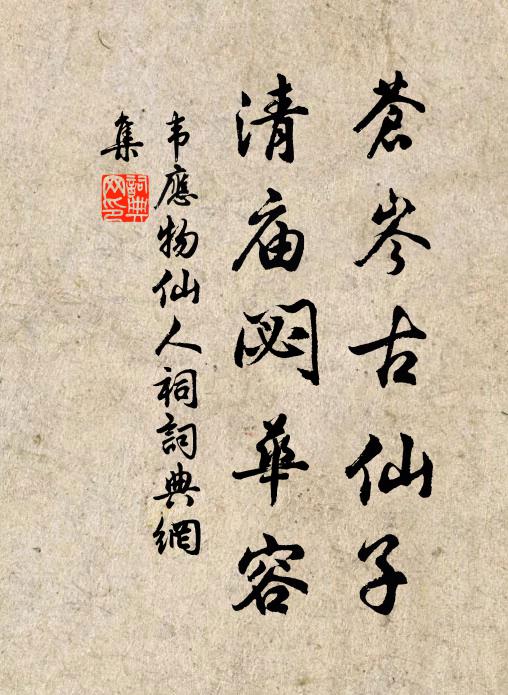 蒼岑古仙子
清庙閟華容
韦應物仙人祠詞典網
集
詞典网印